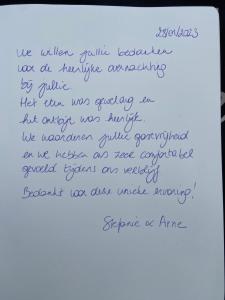 28/01/2023
We willen jullie bedanken
voor de heerlijke overnachting
bij jullie.
Het eten was geweldig en
het ontbijt was heerlijk.
We waarderen jullie gastvrijheid
en we hebben ons zeer comfortabel
gevoeld tijdens ons verblijf.
Bedankt voor deze unieke ervaring!
Stefanie & Arne